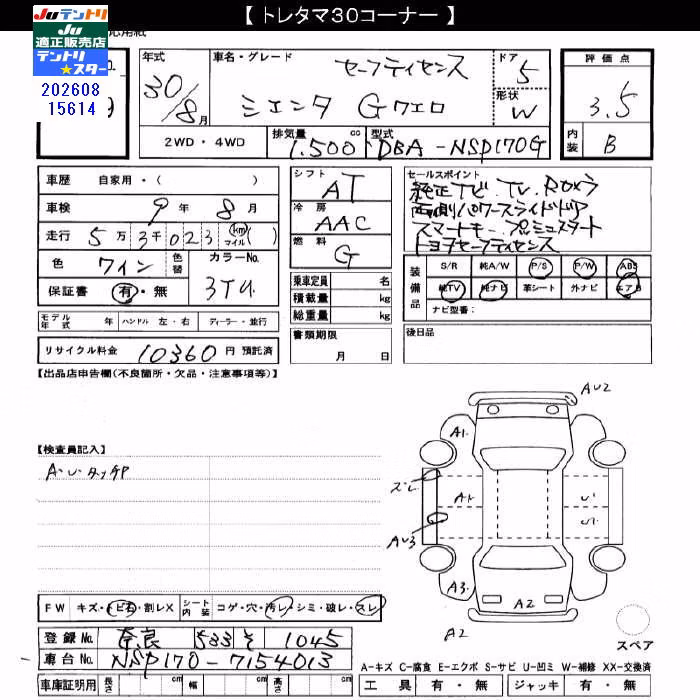 【 トレタマ30コーナー 】
JUテントリ
JU
適正販売店
テントリ
スター
202608
15614
年式 車名・グレード ドア 評価点
30/8月 セーフティセンス 5 3.5
シエンタ Gクエロ 形状 W
内装 B
2WD・4WD 排気量 1,500 cc 型式 DBA-NSP170G
車歴 自家用・( )
車検 9年 8月
走行 5万3千023 km マイル ( )
色 ワイン 色替 カラーNo.
保証書 有・無 3TU
シフト AT
冷房 AAC
燃料 G
乗車定員 名
積載量 kg
総重量 kg
セールスポイント
純正ナビ.TV.Rカメラ
両側パワースライドドア
スマートキー プッシュスタート
トヨタセーフティセンス
装備品 S/R 純A/W P/S P/W ABS
純TV 純ナビ 革シート 外ナビ エアB
ナビ型番:
モデル年式 年 ハンドル 左・右 ディーラー・並行
書類期限 月 日
後日品
リサイクル料金 10360 円 預託済
【出品店申告欄(不良箇所・欠品・注意事項等)】
【検査員記入】
A・U・タッチP
AU2
A1.
A1
AU3
A3.
A2
A2
FW キズ・トビ石・割レX シート内装 コゲ・穴・汚レ・シミ・破レ・スレ
登録No. 奈良 533 そ 1045
車台No. NSP170-7154013
車庫証明用 長さ cm 幅 cm 高さ cm
スペア
A-キズ C-腐食 E-エクボ S-サビ U-凹ミ W-補修 XX-交換済
工具 有・無 ジャッキ 有・無